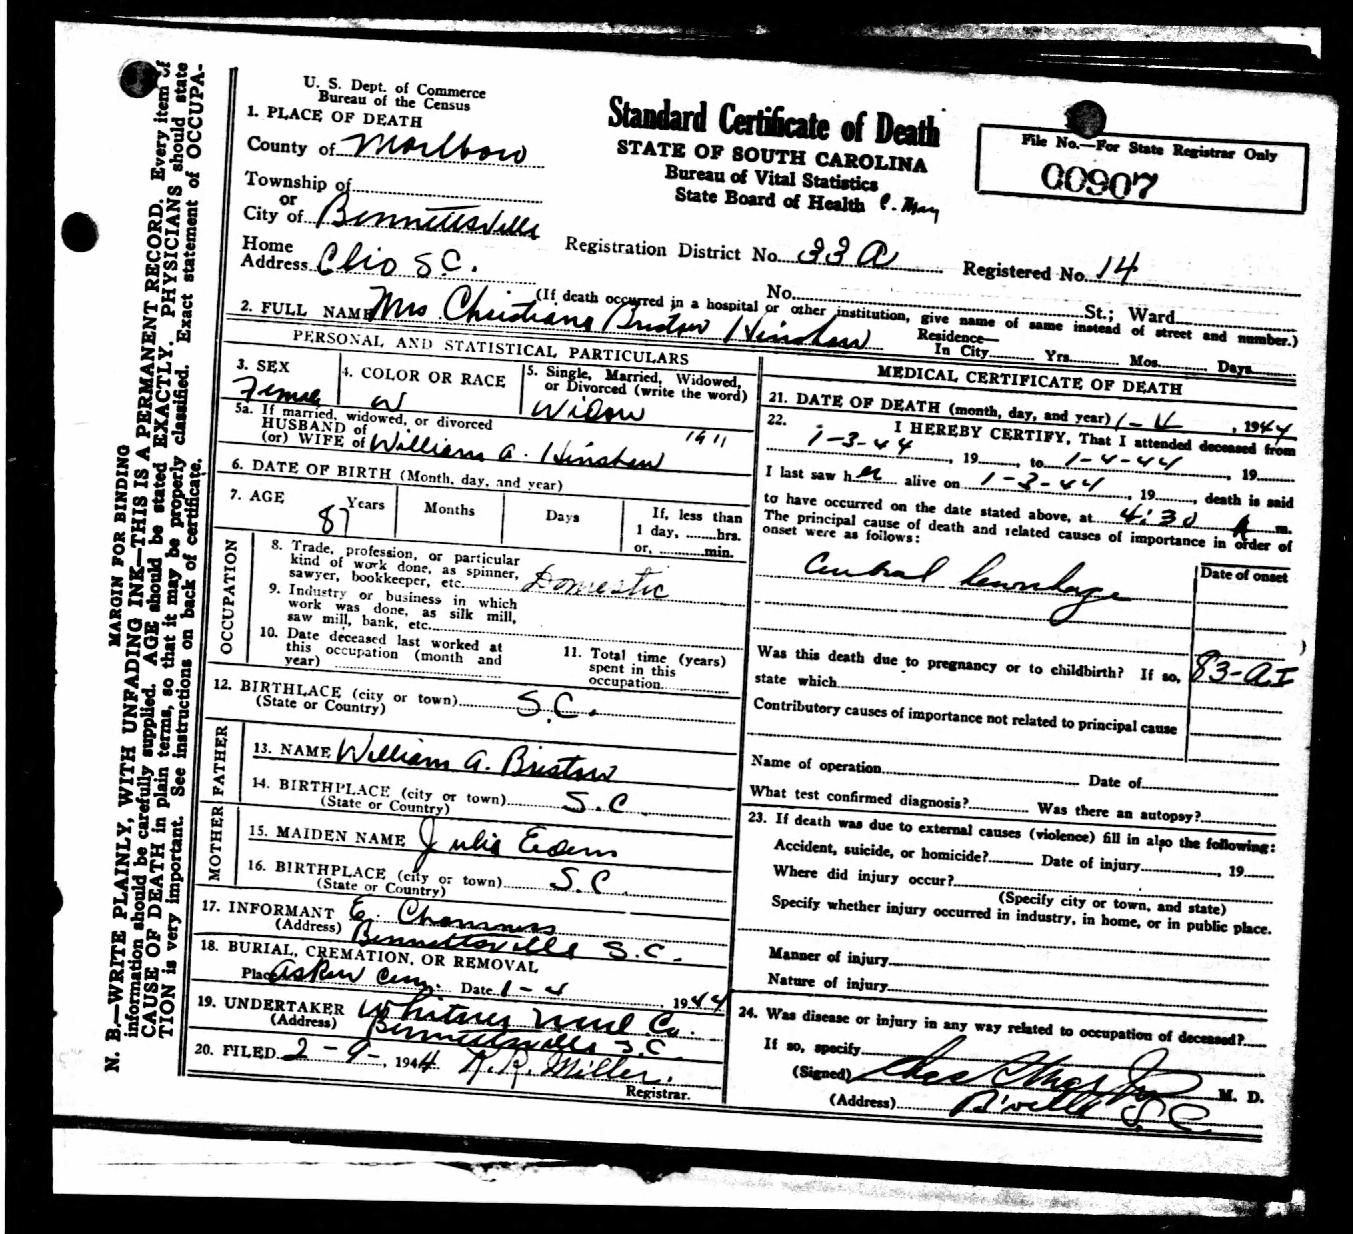 N. B.—WRITE PLAINLY, WITH UNFADING INK—THIS IS A PERMANENT RECORD. Every item of
information should be carefully supplied. AGE should be stated EXACTLY. PHYSICIANS should state
CAUSE OF DEATH in plain terms, so that it may be properly classified. Exact statement of OCCUPA-
TION is very important. See instructions on back of certificate.
MARGIN FOR BINDING
U. S. Dept. of Commerce
Bureau of the Census
Standard Certificate of Death
STATE OF SOUTH CAROLINA
Bureau of Vital Statistics
State Board of Health
File No.—For State Registrar Only
00907
1. PLACE OF DEATH
County of Marlboro
Township of
or
City of Bennettsville
Home
Address Clio S.C.
Registration District No. 33 A
Registered No. 14
No. St.; Ward
(If death occurred in a hospital or other institution, give name of same instead of street and number.)
2. FULL NAME Mrs Christiana Bristow Hinshaw
Residence—
In City Yrs. Mos. Days
PERSONAL AND STATISTICAL PARTICULARS
3. SEX
Female
4. COLOR OR RACE
W
5. Single, Married, Widowed,
or Divorced (write the word)
Widow
5a. If married, widowed, or divorced
HUSBAND of
(or) WIFE of William A. Hinshaw
1911
6. DATE OF BIRTH (Month, day, and year)
7. AGE
87 Years
Months
Days
If, less than
1 day, hrs.
or, min.
OCCUPATION
8. Trade, profession, or particular
kind of work done, as spinner,
sawyer, bookkeeper, etc. Domestic
9. Industry or business in which
work was done, as silk mill,
saw mill, bank, etc.
10. Date deceased last worked at
this occupation (month and
year)
11. Total time (years)
spent in this
occupation
12. BIRTHLACE (city or town) S.C.
(State or Country)
FATHER
13. NAME William A. Bristow
14. BIRTHPLACE (city or town) S.C
(State or Country)
MOTHER
15. MAIDEN NAME Julia Edens
16. BIRTHPLACE (city or town) S.C.
(State or Country)
17. INFORMANT E.
(Address) Bennettsville S.C.
18. BURIAL, CREMATION, OR REMOVAL
Place Cem. Date 1-4, 1944
19. UNDERTAKER Whitner Co.
(Address) Bennettsville S.C.
20. FILED 2-9-, 1944 R. R. Miller.
Registrar.
MEDICAL CERTIFICATE OF DEATH
21. DATE OF DEATH (month, day, and year) 1-4, 1944
22. I HEREBY CERTIFY, That I attended deceased from
1-3-44, 19, to 1-4-44, 19
I last saw her alive on 1-3-44, 19, death is said
to have occurred on the date stated above, at 4:30 A m.
The principal cause of death and related causes of importance in order of
onset were as follows:
Date of onset
Cerebral hemorrhage
Was this death due to pregnancy or to childbirth? If so,
state which
Contributory causes of importance not related to principal cause
Name of operation Date of
What test confirmed diagnosis? Was there an autopsy?
23. If death was due to external causes (violence) fill in also the following:
Accident, suicide, or homicide? Date of injury, 19
Where did injury occur?
(Specify city or town, and state)
Specify whether injury occurred in industry, in home, or in public place.
Manner of injury
Nature of injury
24. Was disease or injury in any way related to occupation of deceased?
If so, specify
(Signed) M. D.
(Address) B'ville S.C